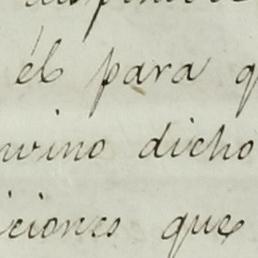 él para q
vino dicho
iciones que